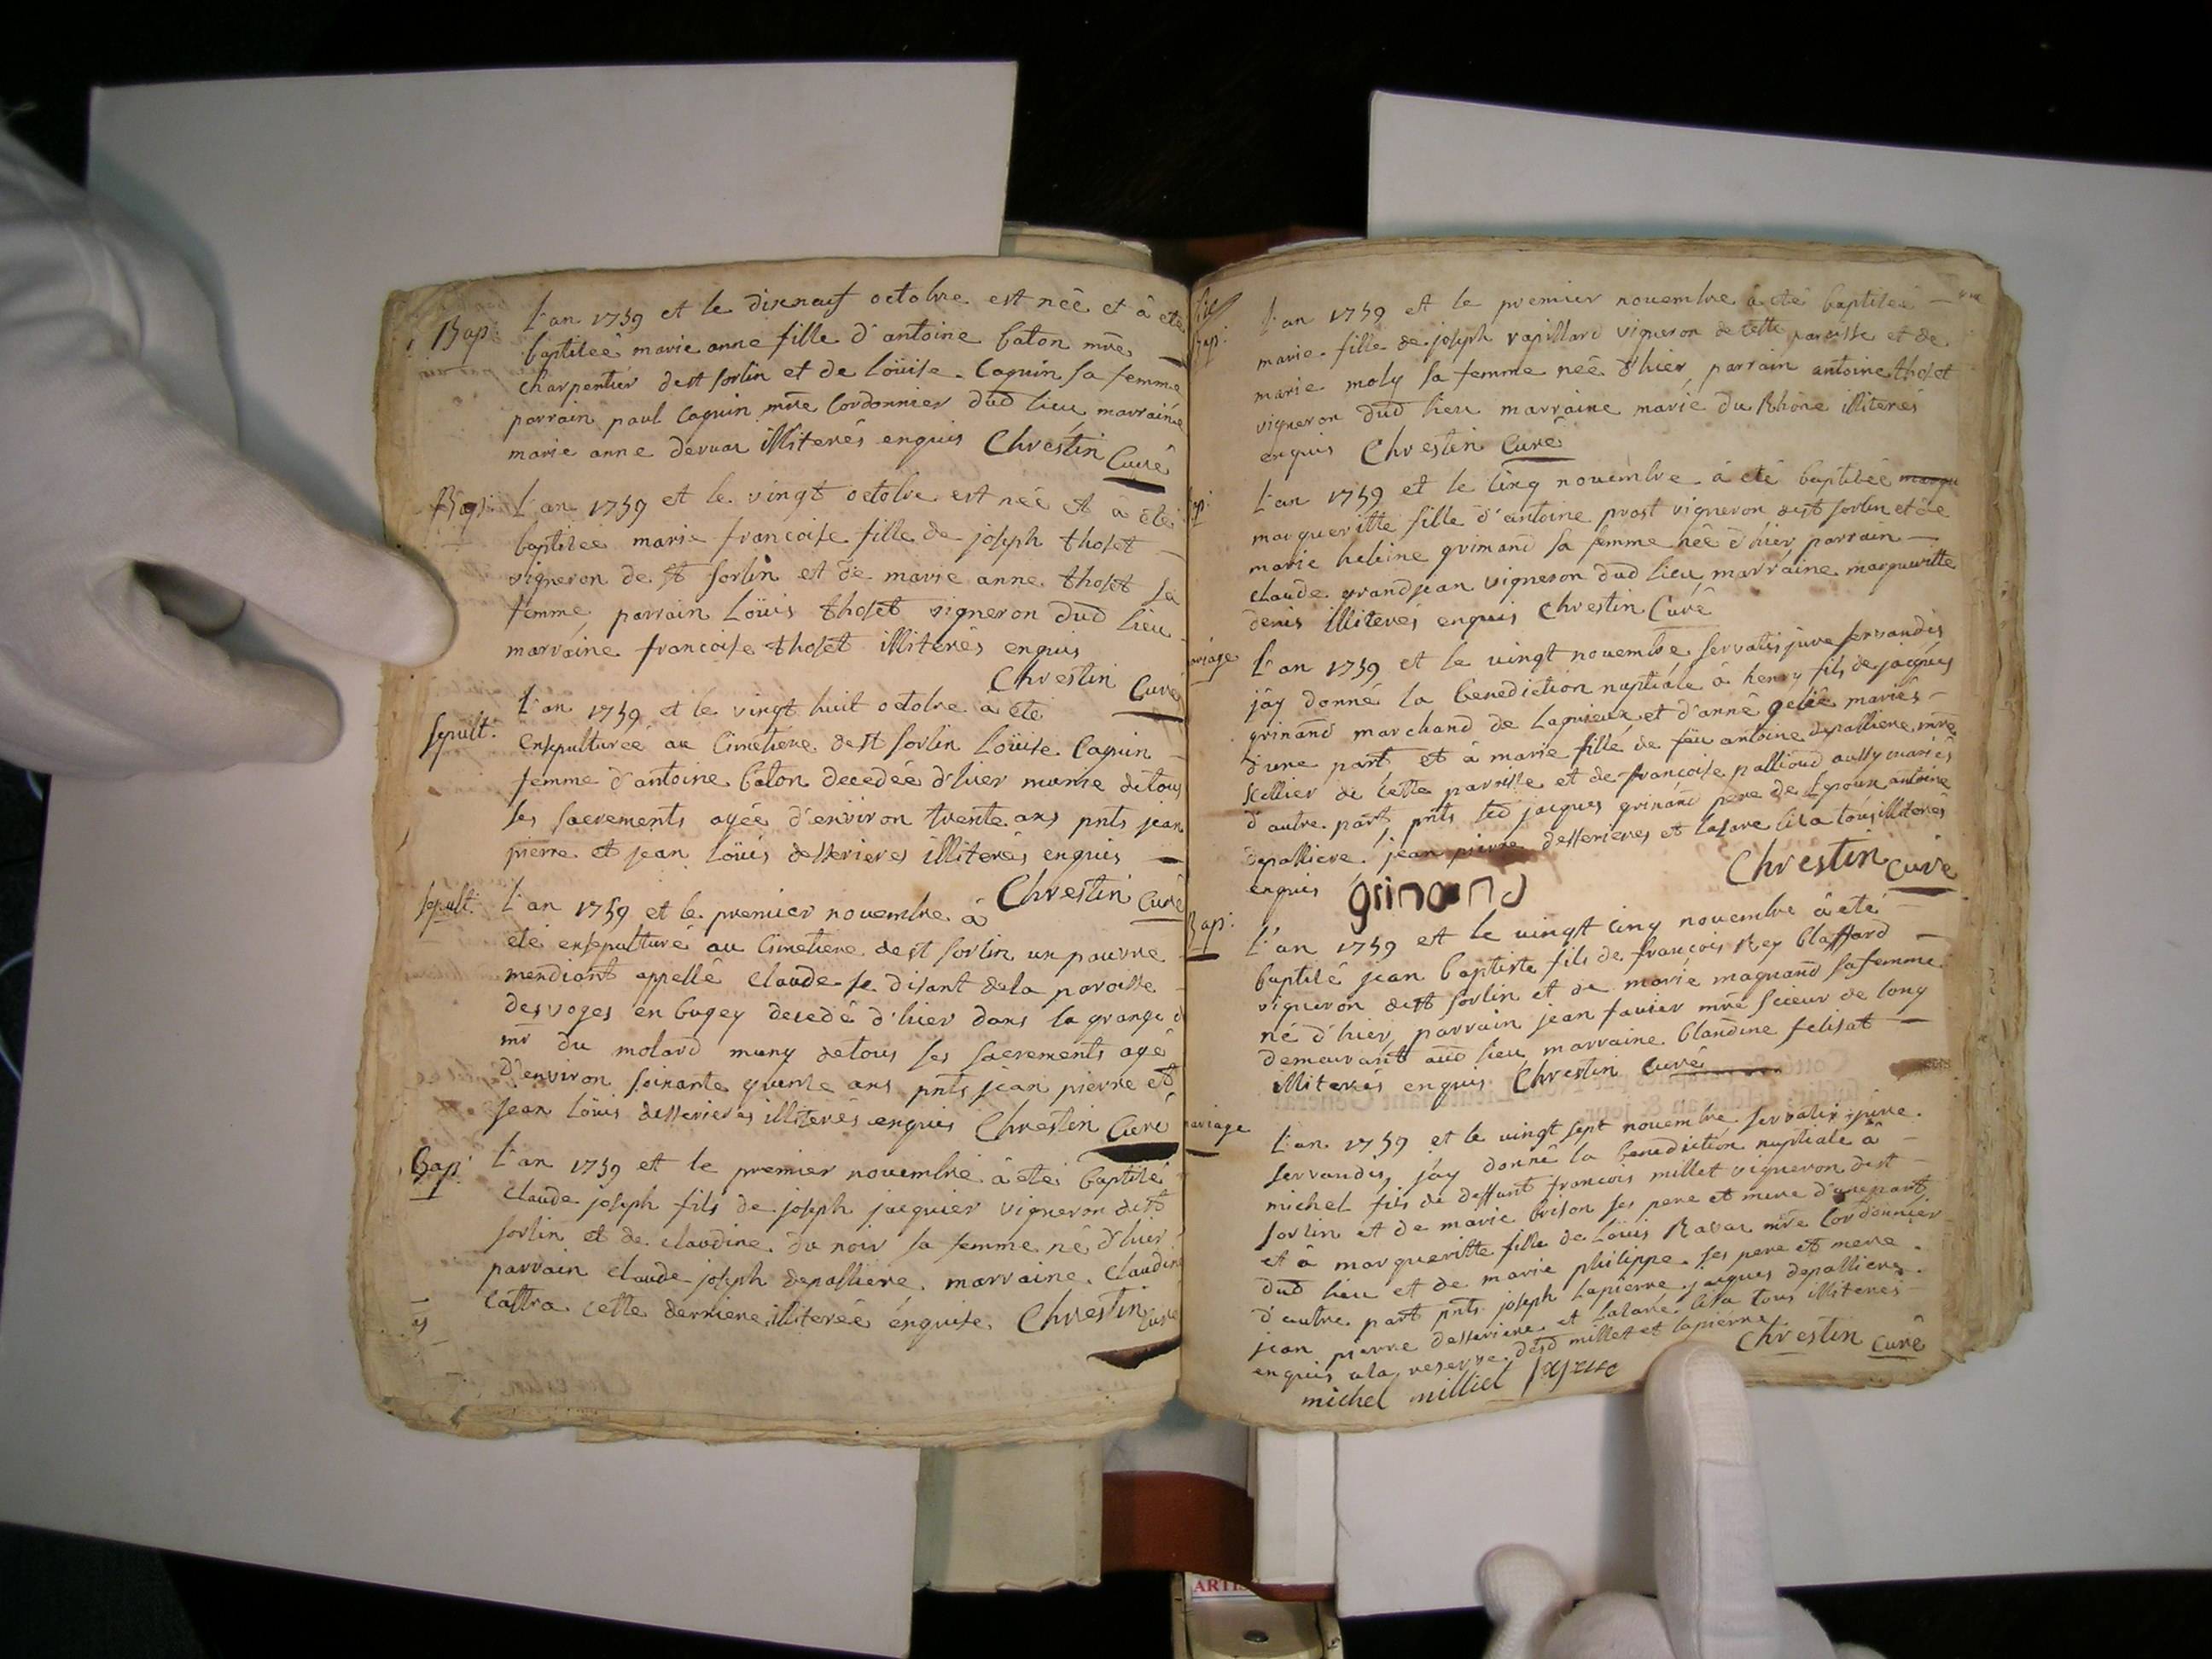 Bap: L'an 1759 et le dixneuf octobre est née et à eté
baptiseé marie anne fille d'antoine baton mre
charpentier de st sorlin et de Loüise Coquin sa femme
parrain paul Coquin mre Cordonnier dud lieu marraine
marie anne illiterés enquis Chrestin Curé
Bap: L'an 1759 et le vingt octobre est née et à eté
baptisée marie francoise fille de joseph thoset
vigneron de st sorlin et de marie anne thoset sa
femme, parrain Loüis thoset vigneron dud lieu
marraine francoise thoset illiterés enquis
Chrestin Curé
Sepult: L'an 1759 et le vingt huit octobre à eté
Ensepultureé au Cimetiere de st sorlin Loüise Coquin
femme d'antoine baton decedée d'hier munie de tous
ses sacrements agée d'environ trente ans pnts jean
pierre et jean Loüis desserieres illiterés enquis
Chrestin Curé
Sepult. L'an 1759 et le premier novembre à
eté ensepulturé au Cimetiere de st sorlin un pauvre
mendiant appellé Claude se disant de la paroisse
des voges en bugey decedé d'hier dans la grange d
mr du molard muny de tous ses sacrements agé
d'environ soixante quinze ans pnts jean pierre et
jean Loüis desserieres illiterés enquis Chrestin Curé
Bap: L'an 1759 et le premier novembre à eté baptisé
Claude joseph fils de joseph jacquier vigneron de st
sorlin et de claudine du noir sa femme né d'hier
parrain Claude joseph depalliere, marraine Claudine
Cattra cette derniere illiterée enquise. Chrestin Curé
Bap: L'an 1759 et le premier novembre à eté baptiseé
marie fille de joseph rapillard vigneron de cette paroisse et de
marie moly sa femme neé d'hier, parrain antoine thoset
vigneron dud lieu marraine marie du Rhône illiterés
enquis Chrestin Curé
Bap: L'an 1759 et le Cinq novembre à eté baptiseé margu
margueritte fille d'antoine prost vigneron de st sorlin et de
marie heleine grimand sa femme neé d'hier parrain
claude grandjean vigneron dud lieu, marraine margueritte
denis illiterés enquis Chrestin Curé
mariage L'an 1759 et le vingt novembre servatis jure servandis
j'ay donné la benediction nuptiale à henry fils de jacques
grinand marchand de Lagnieux et d'anne gelée mariés
d'une part et à marie fille de fëu antoine depalliere mre
sellier de cette paroisse et de françoise pallioud aussy mariés
d'autre part, pnts led jacques grinand pere de Lepoux antoine
depalliere, jean pierre desserieres et lasare tous illiterés
enquis grinand Chrestin Curé
Bap: L'an 1759 et le vingt cinq novembre à eté
baptisé jean baptiste fils de françois Rey blaffard
vigneron de st sorlin et de marie magnand sa femme
né d'hier, parrain jean favier mre scieur de long
demeurant aud lieu, marraine blandine felisat
illiterés enquis Chrestin Curé
mariage L'an 1759 et le vingt sept novembre servatis jure
servandis, j'ay donné la benediction nuptiale à
michel fils de deffunt francois millet vigneron de st
sorlin et de marie brison ses pere et mere d'une part
et à margueritte fille de Loüis Ravar mre Cordonnier
dud lieu et de marie philippe ses pere et mere
d'autre part pnts joseph lapierre, jacques depalliere
jean pierre desseriere et lasare tous illiterés
enquis a la reserve desd millet et lapierre
Chrestin Curé
michel milliet